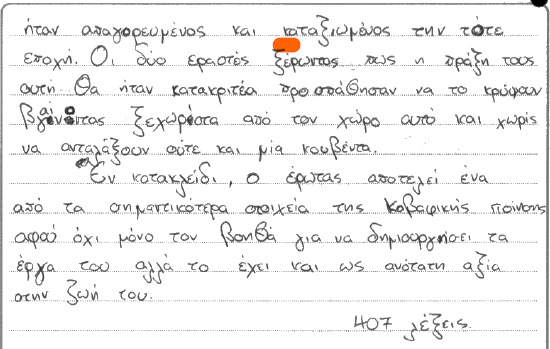 ήταν απαγορευμένος και καταξιωμένος την τότε
εποχή. Οι δύο εραστές ξέρωντας πως η πράξη τους
αυτή θα ήταν κατακριτέα προσπάθησαν να το κρύψουν
βγαίνοντας ξεχωρίστα από τον χώρο αυτό και χωρίς
να ανταλάξουν ούτε και μία κουβέντα.
Εν κατακλείδι, ο έρωτας αποτελεί ένα
από τα σημαντικότερα στοιχεία της Καβαφικής ποίησης
αφού όχι μόνο τον βοηθά για να δημιουργήσει τα
έργα του αλλά το έχει και ως ανότατη αξία
στην ζωή του.
407 λέξεις.